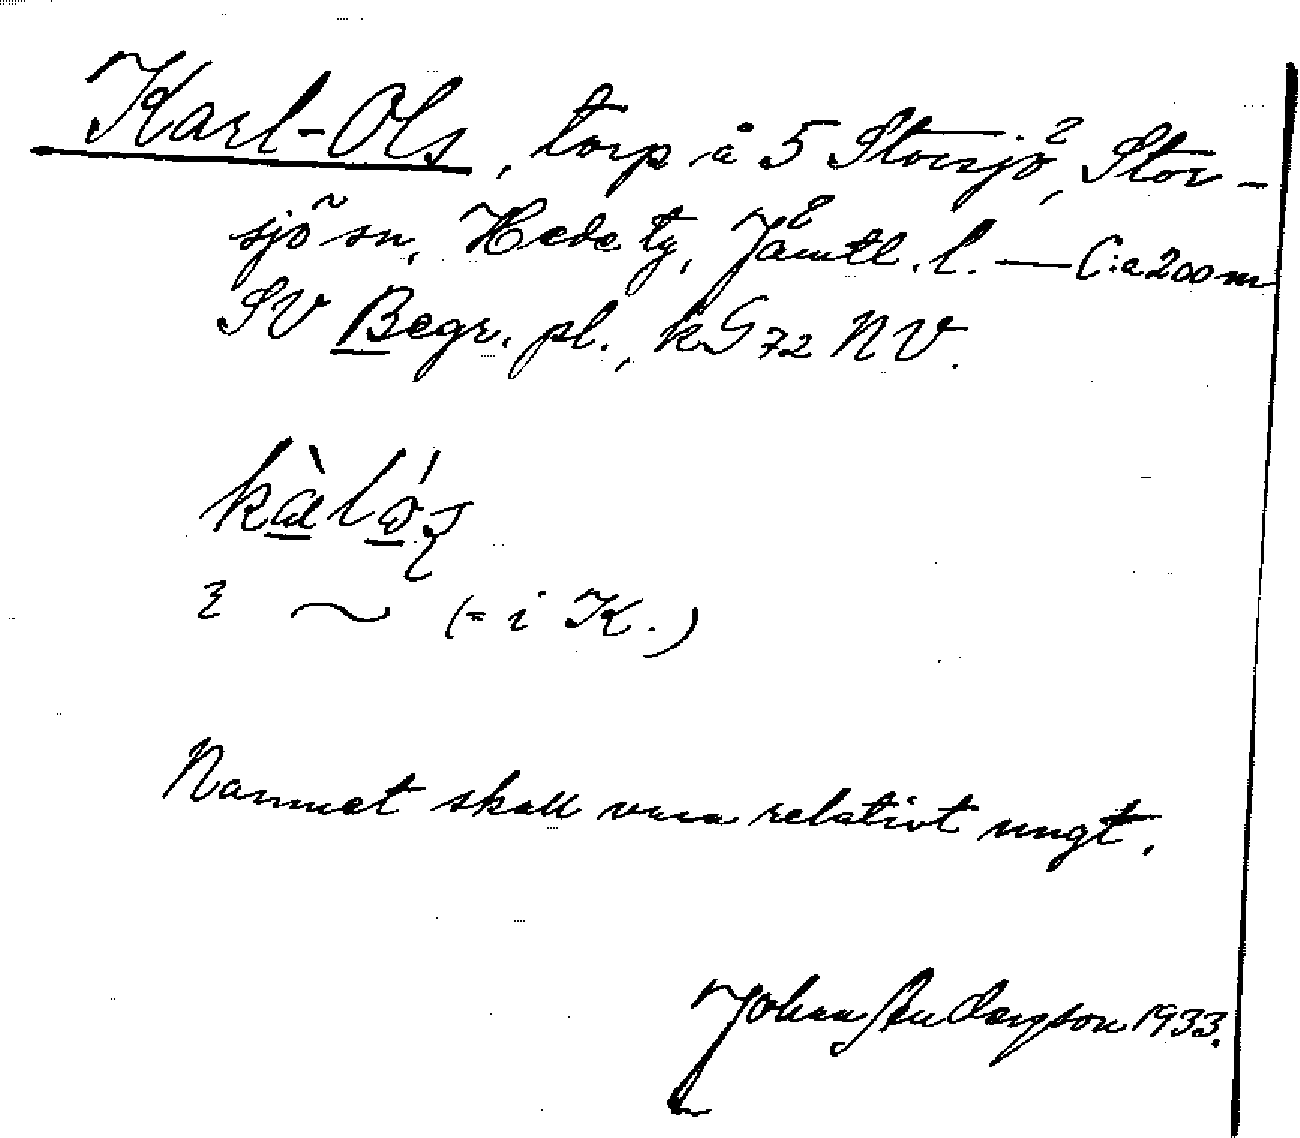 Karl-Ols, torp å 5 Storsjö, Stor-
sjö sn, Hede tg, Jämtl. l. — C:a 200 m
SV Begr. pl., kG 72 NV.
kàló̱z
~ (= i K.)
Namnet skall vara relativt ungt.
Johan Anderzson 1933.